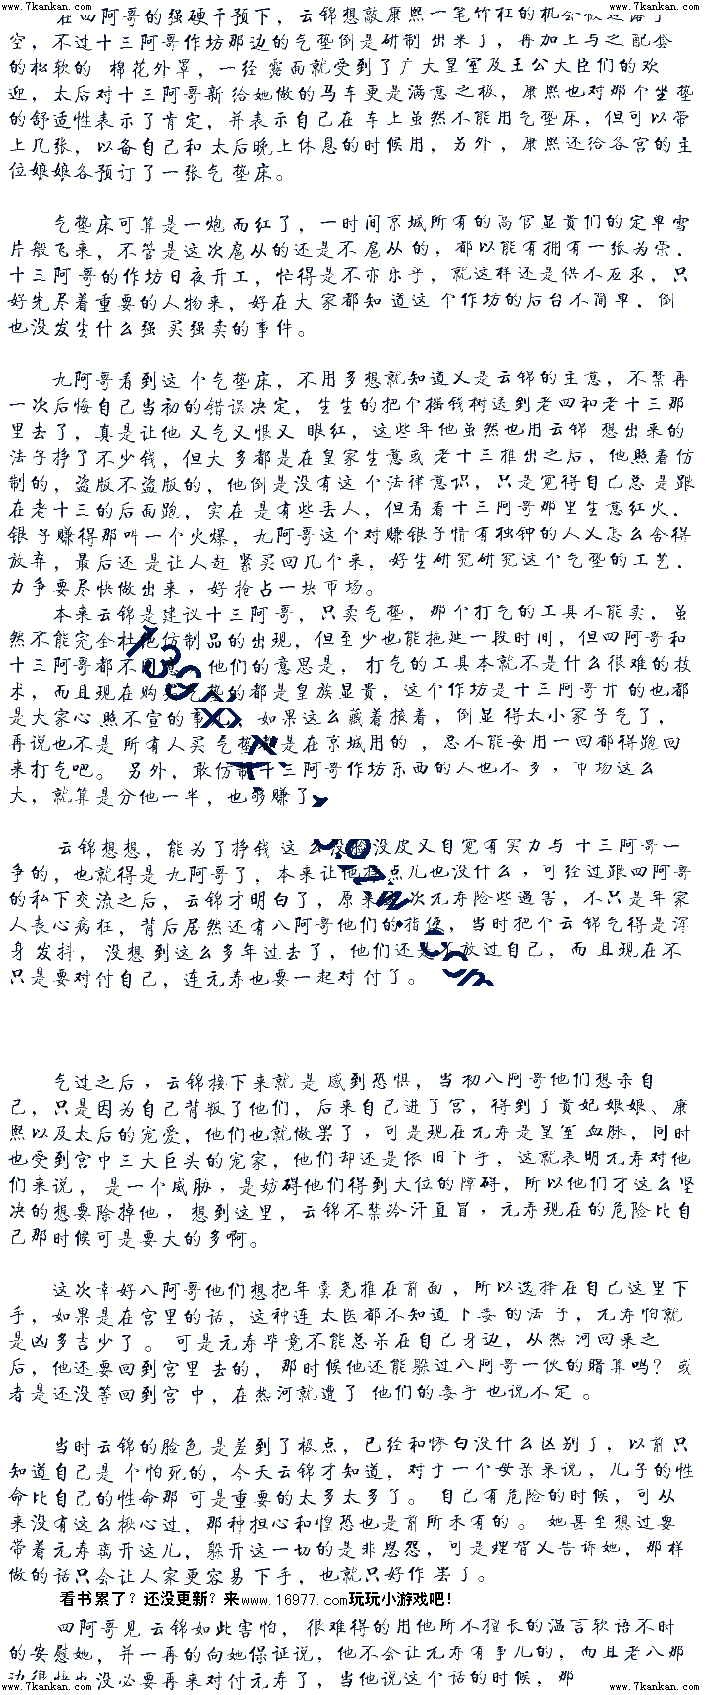 www.7kankan.com www.7kankan.com
在四阿哥的强硬干预下，云锦想敲康熙一笔竹杠的机会
空，不过十三阿哥作坊那边的气垫倒是研制出来了，再加上与之配套
的松软的 棉花外罩，一经露面就受到了广大皇室及王公大臣们的欢
迎，太后对十三阿哥新给她做的马车更是满意之极，康熙也对那个坐垫
的舒适性表示了肯定，并表示自己在车上虽然不能用气垫床，但可以带
上几张，以备自己和太后晚上休息的时候用，另外，康熙还给各宫的主
位娘娘各预订了一张气垫床。
气垫床可算是一炮而红了，一时间京城所有的高官显贵们的定单雪
片般飞来，不管是这次扈从的还是不扈从的，都以能有拥有一张为荣．
十三阿哥的作坊日夜开工，忙得是不亦乐乎，就这样还是供不应求，只
好先尽着重要的人物来，好在大家都知道这个作坊的后台不简单．倒
也没发生什么强买强卖的事件。
九阿哥看到这个气垫床，不用多想就知道又是云锦的主意，不禁再
一次后悔自己当初的错误决定，生生的把个摇钱树送到老四和老十三那
里去了，真是让他又气又恨又眼红，这些年他虽然也用云锦想出来的
法子挣了不少钱，但大多都是在皇家生意或老十三推出之后，他照着仿
制的，盗版不盗版的，他倒是没有这个法律意识，只是觉得自己总是跟
在老十三的后面跑，实在是有些丢人，但看着十三阿哥那里生意红火．
银子赚得那叫一个火爆，九阿哥这个对赚银子情有独钟的人又怎么舍得
放弃，最后还是让人赶紧买回几个来，好生研究研究这个气垫的工艺．
力争要尽快做出来，好抢占一块市场。
本来云锦是建议十三阿哥，只卖气垫，那个打气的工具不能卖．虽
然不能完全杜绝仿制品的出现，但至少也能拖延一段时间，但四阿哥和
十三阿哥都不同意，他们的意思是，打气的工具本就不是什么很难的技
术，而且现在购买气垫的都是皇族显贵，这个作坊是十三阿哥开的也都
是大家心照不宣的事儿，如果这么藏着掖着，倒显得太小家子气了，
再说也不是所有人买气垫都是在京城用的，总不能每用一回都得跑回
来打气吧。另外，敢仿制十三阿哥作坊东西的人也不多，市场这么
大，就算是分他一半，也够赚了
云锦想想，能为了挣钱这么没脸没皮又自觉有实力与十三阿哥一
争的，也就得是九阿哥了，本来让他挣点儿也没什么，可经过跟四阿哥
的私下交流之后，云锦才明白了，原来这次元寿险些遇害，不只是年家
人丧心病狂，背后居然还有八阿哥他们的指使，当时把个云锦气得是浑
身发抖，没想到这么多年过去了，他们还是不放过自己，而且现在不
只是要对付自己，连元寿也要一起对付了。
气过之后，云锦接下来就是感到恐惧，当初八阿哥他们想杀自
己，只是因为自己背叛了他们，后来自己进了宫，得到了贵妃娘娘、康
熙以及太后的宠爱，他们也就做罢了，可是现在元寿是皇室血脉，同时
也受到宫中三大巨头的宠家，他们却还是依旧下手，这就表明元寿对他
们来说，是一个威胁，是妨碍他们得到大位的障碍，所以他们才这么坚
决的想要除掉他，想到这里，云锦不禁冷汗直冒，元寿现在的危险比自
己那时候可是要大的多啊。
这次幸好八阿哥他们想把年羹尧推在前面，所以选择在自己这里下
手，如果是在宫里的话，这种连太医都不知道下毒的法子，元寿怕就
是凶多吉少了。可是元寿毕竟不能总呆在自己身边，从热河回来之
后，他还要回到宫里去的，那时候他还能躲过八阿哥一伙的暗算吗？或
者是还没等回到宫中，在热河就遭了他们的毒手也说不定。
当时云锦的脸色是差到了极点，已经和惨白没什么区别了，以前只
知道自己是个怕死的，今天云锦才知道，对于一个母亲来说，儿子的性
命比自己的性命那可是重要的太多太多了。自己有危险的时候，可从
来没有这么揪心过，那种担心和惶恐也是前所未有的。她甚至想过要
带着元寿离开这儿，躲开这一切的是非恩怨，可是理智又告诉她，那样
做的话只会让人家更容易下手，也就只好作罢了。
看书累了？还没更新？来www.16977.com玩玩小游戏吧！
四阿哥见云锦如此害怕，很难得的用他所不擅长的温言软语不时
的安慰她，并一再的向她保证说，他不会让元寿有事儿的，而且老八那
边很快也没必要再来对付元寿了，当他说这个话的时候，那
www.7kankan.com www.7kankan.com